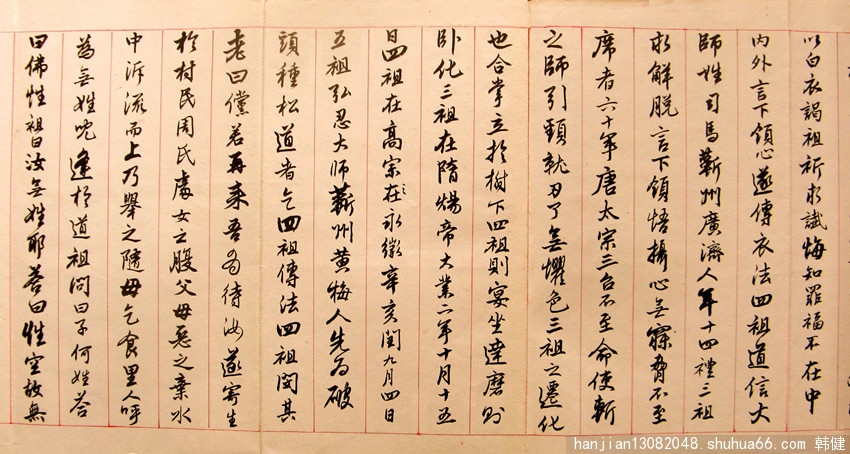 以白衣謁祖祈求懺悔知罪福不在中
內外言下領心遂傳衣法四祖道信大
師姓司馬蘄州廣濟人年十四禮三祖
求解脫言下領悟攝心無寐脅不至
席者六十年唐太宗三召不至命使斬
之師引頸就刃了無懼色三祖之遷化
也合掌立於樹下四祖則宴坐達磨則
臥化三祖在隋煬帝大業二年十月十五
日四祖在高宗在永徽辛亥閏九月四日
五祖弘忍大師蘄州黃梅人先為破
頭種松道者乞四祖傳法四祖閔其
老曰儻若再來吾為待汝遂寄生
於村民周氏處女之腹父母惡之棄水
中泝流而上乃舉之隨母乞食里人呼
為無姓兒逢於道祖問曰子何姓答
曰佛性祖曰汝無姓耶答曰性空故無
hanjian13082048.shuhua66.com 韩健